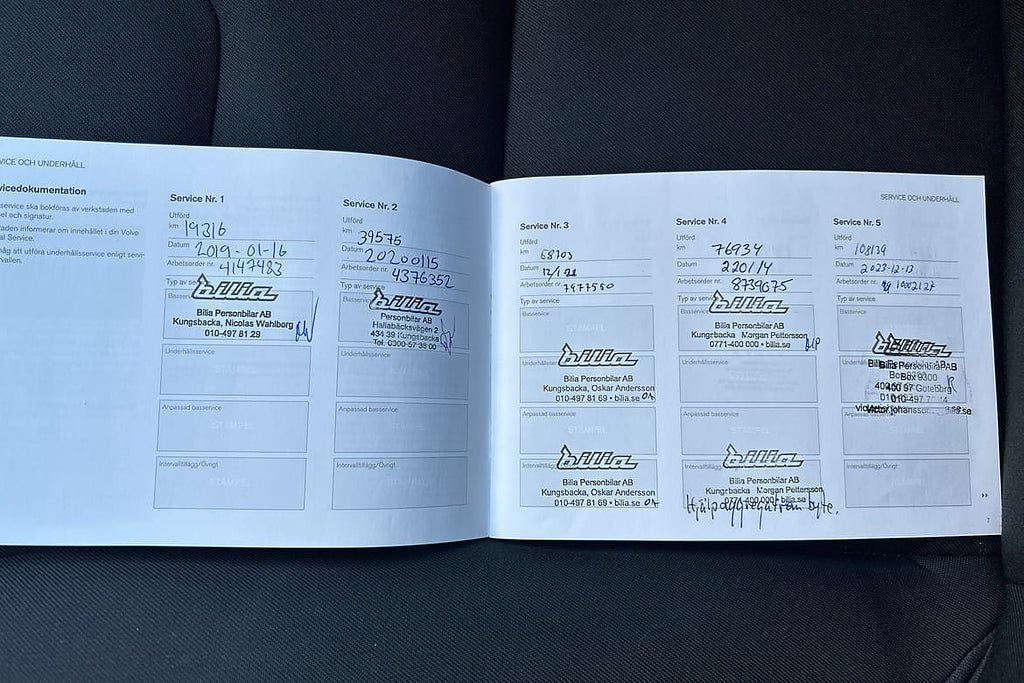 VICE OCH UNDERHÅLL
vicedokumentation
service ska bokföras av verkstaden med
pel och signatur.
taden informerar om innehållet i din Volvo
al Service.
håg att utföra underhållsservice enligt servi-
rvallen.
Service Nr. 1
Utförd
km 19316
Datum 2019-01-16
Arbetsorder nr. 4147483
Typ av
Basser
bilia
Bilia Personbilar AB
Kungsbacka, Nicolas Wahlborg
010-497 81 29
Underhållsservice
STÄMPEL
Anpassad basservice
STÄMPEL
Intervalltillägg/Övrigt
STÄMPEL
Service Nr. 2
Utförd
km 39575
Datum 20200115
Arbetsorder nr. 4376352
Typ av se
Basser
bilia
Personbilar AB
Hallabäcksvägen 2
434 39 Kungsbacka
Tel. 0300-57 38 00
Underhållsservice
Anpassad basservice
Intervalltillägg/Övrigt
Service Nr. 3
Utförd
km 58703
Datum 12/1 21
Arbetsorder nr. 7477550
Typ av service
Basservice
STÄMPEL
Underhållsservice
bilia
Bilia Personbilar AB
Kungsbacka, Oskar Andersson
010-497 81 69 • bilia.se OA
Anpassad basservice
STÄMPEL
Intervalltillägg
bilia
Bilia Personbilar AB
Kungsbacka, Oskar Andersson
010-497 81 69 • bilia.se OA
SERVICE OCH UNDERHÅLL
Service Nr. 4
Utförd
km 76934
Datum 220114
Arbetsorder nr. 8739675
Typ av service
Basservice
bilia
Bilia Personbilar AB
Kungsbacka Morgan Pettersson
0771-400 000 • bilia.se MP
Underhållsservice
Anpassad basservice
STÄMPEL
Intervalltillägg
bilia
Bilia Personbilar AB
Kungsbacka Morgan Pettersson
0771-400 000 • bilia.se
Hjälpaggregatrem byte.
Service Nr. 5
Utförd
km 108139
Datum 2023-12-13
Arbetsorder nr. 1002127
Typ av service
Basservice
bilia
Bilia Personbilar AB
Box 9300
400 97 Göteborg
Underhållsservice
Anpassad basservice
STÄMPEL
Intervalltillägg/Övrigt
7